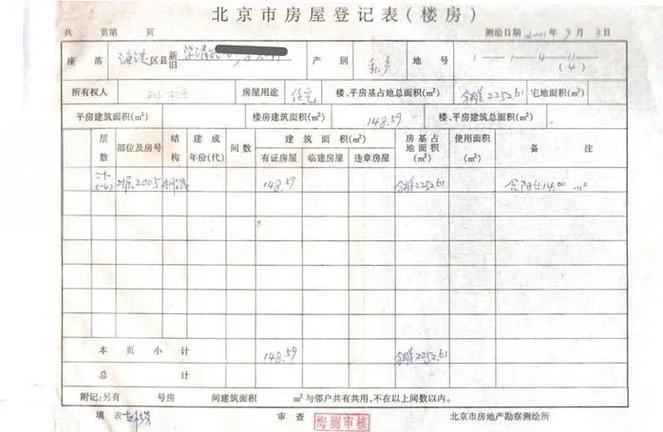 北京市房屋登记表(楼房)
共 页第 页 测绘日期2001年9月3日
座落 海淀区县 新 旧 产别 私产 地号 1-1-4-11 (4)
所有权人 房屋用途 住宅 楼、平房基占地总面积(m²) 分摊2252.61 宅地面积(m²)
平房建筑面积(m²) 楼房建筑面积(m²) 148.59 楼、平房建筑总面积(m²)
层数 部位及房号 结构 建成年份(代) 间数 建筑面积(m²) 房基占地面积(m²) 使用面积(m²) 备注
有证房屋 临建房屋 违章房屋
2005 148.59 分摊2252.61 含阳台14.00m²
本页小计 148.59 分摊2252.61
总计
附记:另有 号房 间建筑面积 m²与邻户共有共用,不在以上间数以内。
填表 审查 海测审核 北京市房地产勘察测绘所